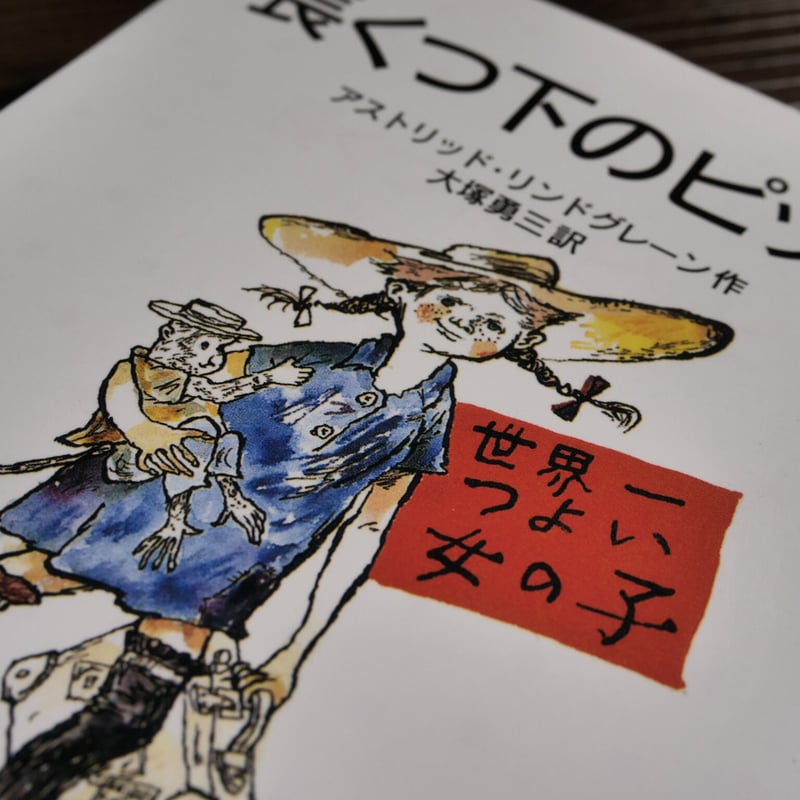 長くつ下のピッ
アストリッド・リンドグレーン作
大塚勇三訳
世界一
つよい
女の子